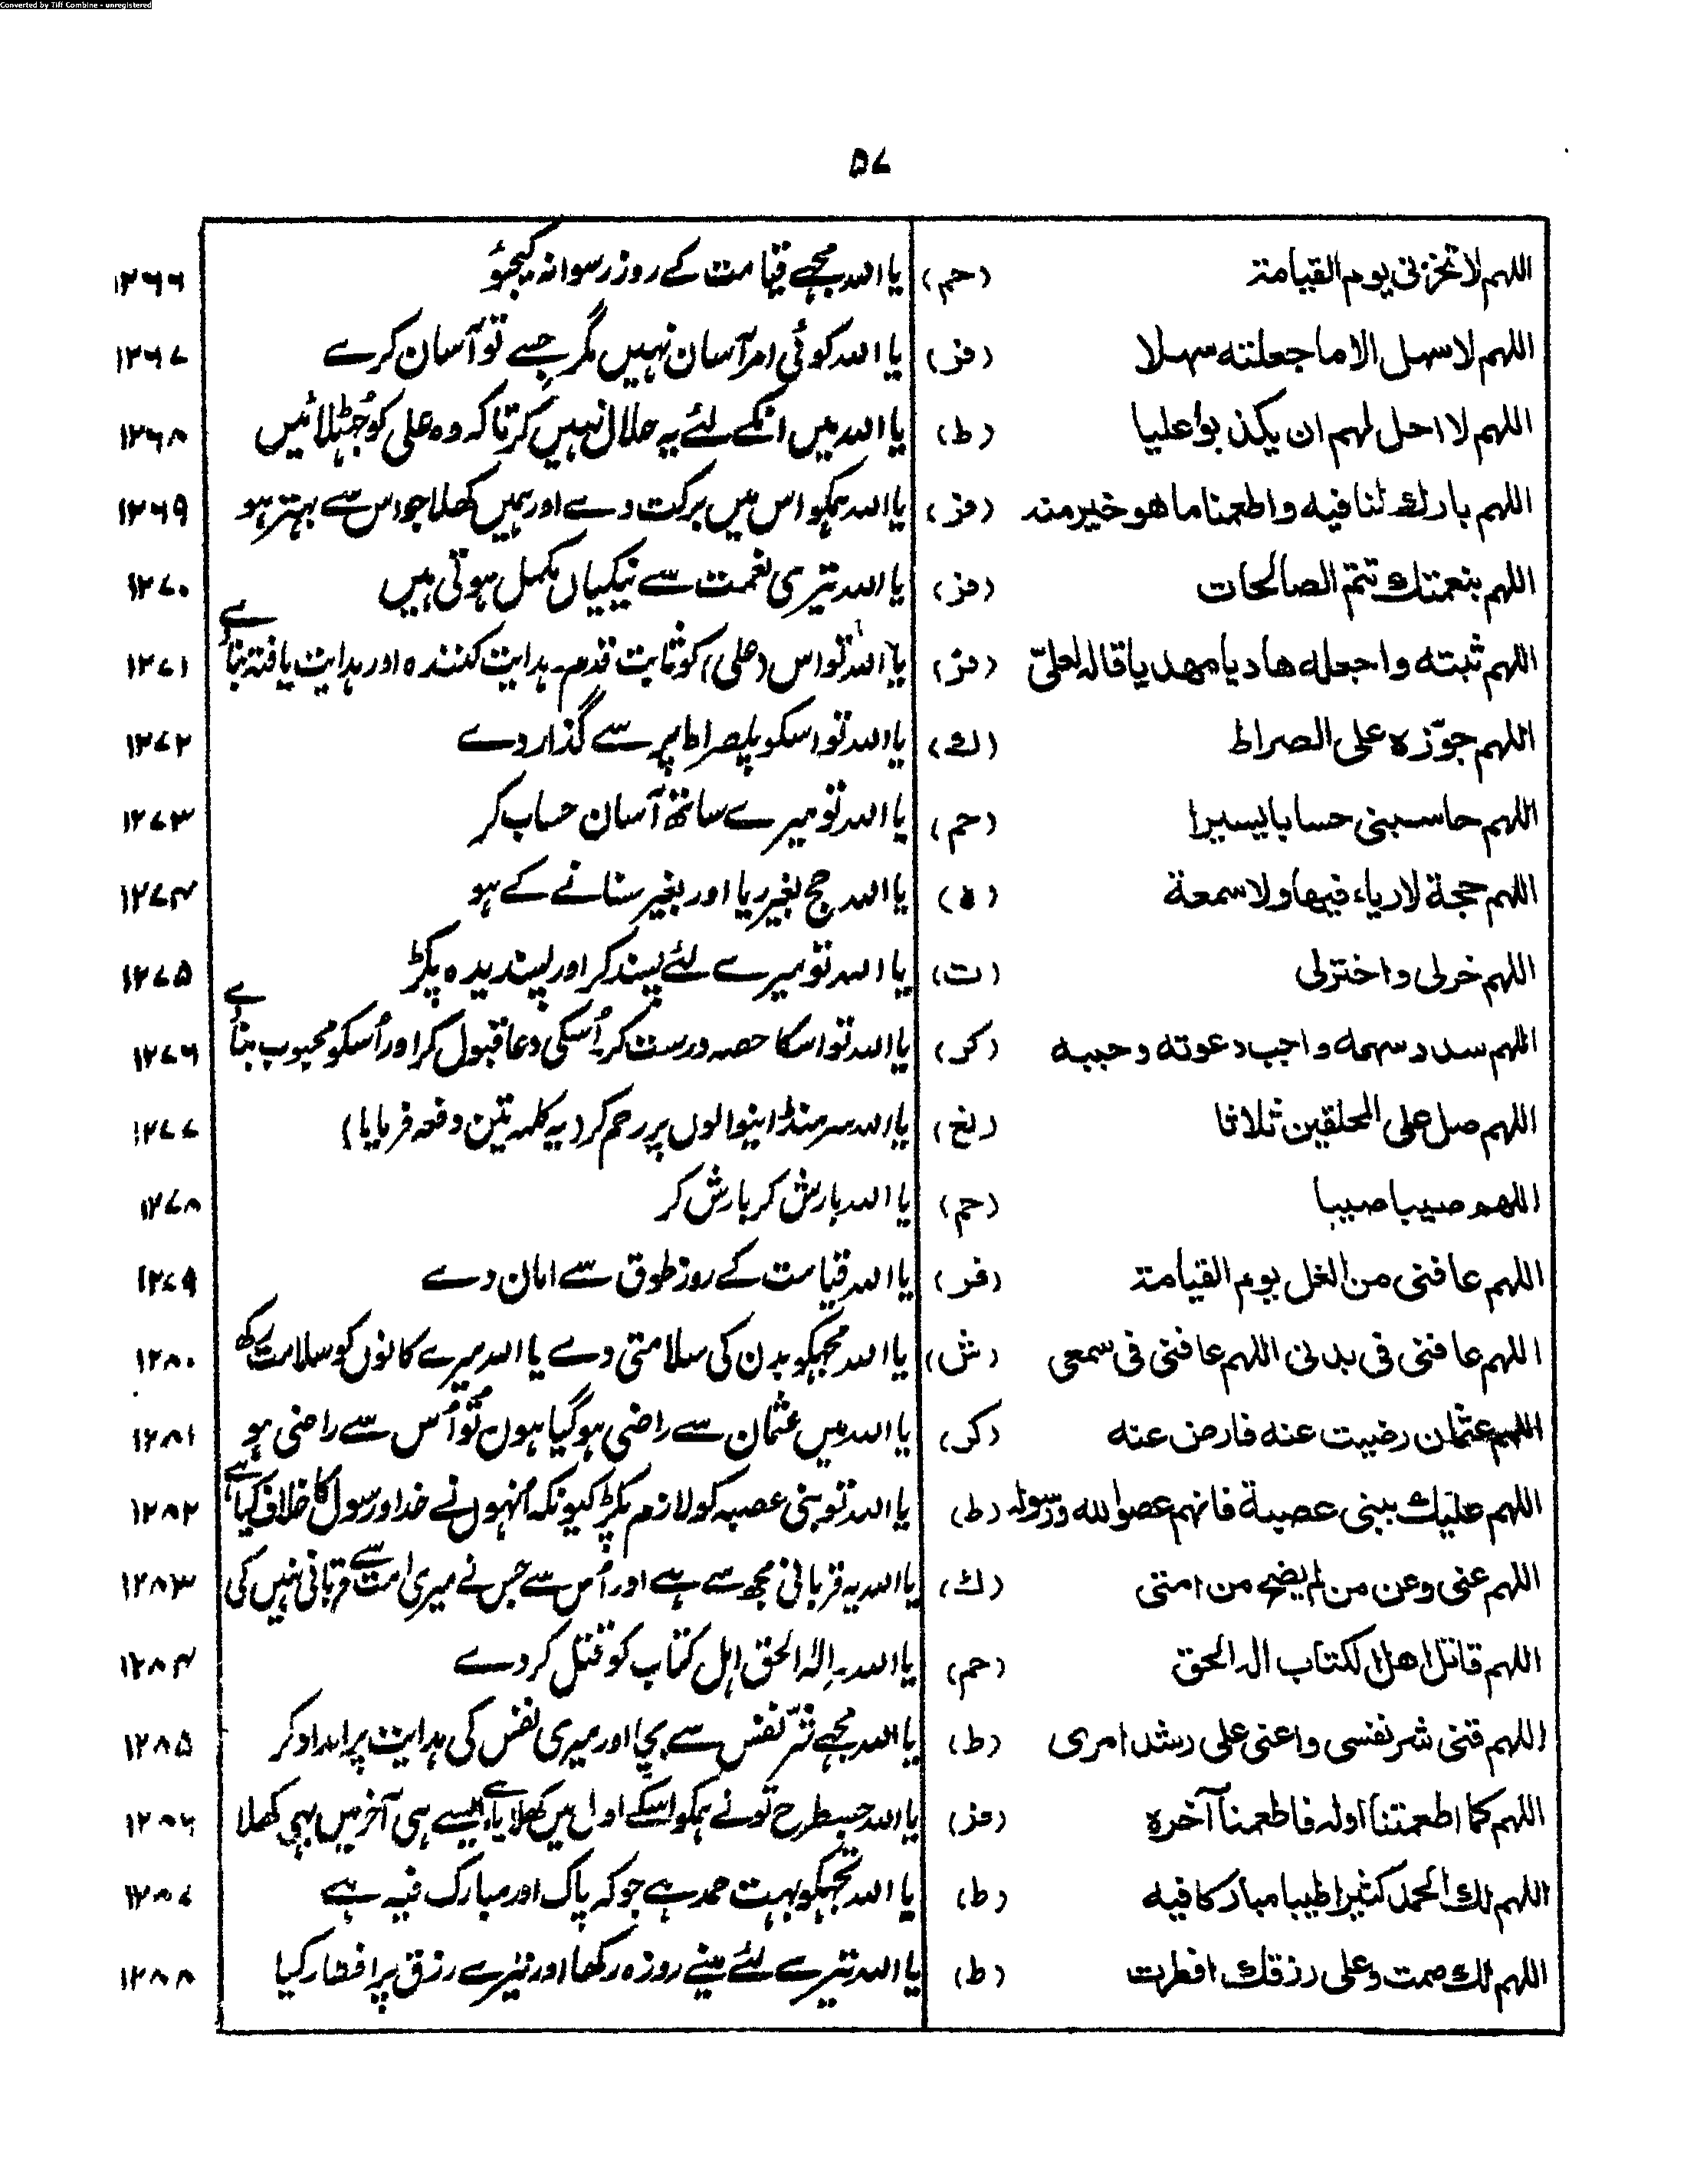 Converted by Tiff Combine - unregistered
۵۷
اللهم لا تخزنى يوم القيامة (حم) یا اللہ مجھے قیامت کے روز رسوا نہ کیجئو ۱۲۶۶
اللهم لا سهل الا ما جعلته سهلا (فز) یا اللہ کوئی امر آسان نہیں مگر جسے تو آسان کرے ۱۲۶۷
اللهم لا احل لهم ان يكذبوا عليا (ط) یا اللہ میں انکے لئے یہ حلال نہیں کرتا کہ وہ علی کو جُٹھلائیں ۱۲۶۸
اللهم بارك لنا فيه و اطعمنا ما هو خير منه (فز) یا اللہ ہمکو اس میں برکت دے اور ہمیں کھلا جو اس سے بہتر ہو ۱۲۶۹
اللهم بنعمتك تتم الصالحات (فز) یا اللہ تیری نعمت سے نیکیاں مکمل ہوتی ہیں ۱۲۷۰
اللهم ثبته و اجعله هاديا مهديا قاله لعلىّ (فز) یا اللہ تو اس (علی) کو ثابت قدم۔ ہدایت کنندہ اور ہدایت یافتہ بنا دے ۱۲۷۱
اللهم جوّزه على الصراط (ك) یا اللہ تو اسکو پلصراط پر سے گذار دے ۱۲۷۲
اللهم حاسبنى حسابا يسيرا (حم) یا اللہ تو میرے ساتھ آسان حساب کر ۱۲۷۳
اللهم حجة لا رياء فيها ولا سمعة (ه) یا اللہ حج بغیر ریا اور بغیر سنانے کے ہو ۱۲۷۴
اللهم خرلى و اخترلى (ت) یا اللہ تو میرے لئے پسند کر اور پسندیدہ پکڑ ۱۲۷۵
اللهم سدد سهمه و اجب دعوته و حببه (كر) یا اللہ تو اسکا حصہ درست کر۔ اُسکی دعا قبول کر اور اُسکو محبوب بنا دے ۱۲۷۶
اللهم صل على المحلقين ثلاثا (بغ) یا اللہ سر منڈانیوالوں پر رحم کر (یہ کلمہ تین دفعہ فرمایا) ۱۲۷۷
اللهم صيبا صيبا (حم) یا اللہ بارش کر بارش کر ۱۲۷۸
اللهم عافنى من الغل يوم القيامة (فر) یا اللہ قیامت کے روز طوق سے امان دے ۱۲۷۹
اللهم عافنى فى بدنى اللهم عافنى فى سمعى (ش) یا اللہ مجھکو بدن کی سلامتی دے یا اللہ میرے کانوں کو سلامت رکھ ۱۲۸۰
اللهم عثمان رضيت عنه فارض عنه (كر) یا اللہ میں عثمان سے راضی ہو گیا ہوں تُو اُس سے راضی ہو ۱۲۸۱
اللهم عليك ببنى عصية فانهم عصوا لله ورسوله (ط) یا اللہ تو بنی عصیہ کو لازم پکڑ کیونکہ اُنہوں نے خدا و رسول کا خلاف کیا ہے ۱۲۸۲
اللهم عنى وعن من لم يضح من امتى (ك) یا اللہ یہ قربانی مجھ سے ہے اور اُس سے جس نے میری امت سے قربانی نہیں کی ۱۲۸۳
اللهم قاتل اهل الكتاب اله الحق (حم) یا اللہ۔ اِلٰہ الحق اہل کتاب کو قتل کر دے ۱۲۸۴
اللهم قنى شر نفسى و اعنى على رشد امرى (ط) یا اللہ مجھے شرّ نفس سے بچا اور میری نفس کی ہدایت پر امداد کر ۱۲۸۵
اللهم كما اطعمتنا اوله فاطعمنا آخره (فز) یا اللہ جسطرح تو نے ہمکو اسکے اول میں کھلایا ہے ایسے ہی آخر میں بھی کھلا ۱۲۸۶
اللهم لك الحمد كثيرا طيبا مباركا فيه (ط) یا اللہ تجھکو بہت حمد ہے جو کہ پاک اور مبارک فیہ ہے ۱۲۸۷
اللهم لك صمت و على رزقك افطرت (ط) یا اللہ تیرے لئے مینے روزہ رکھا اور تیرے رزق پر افطار کیا ۱۲۸۸